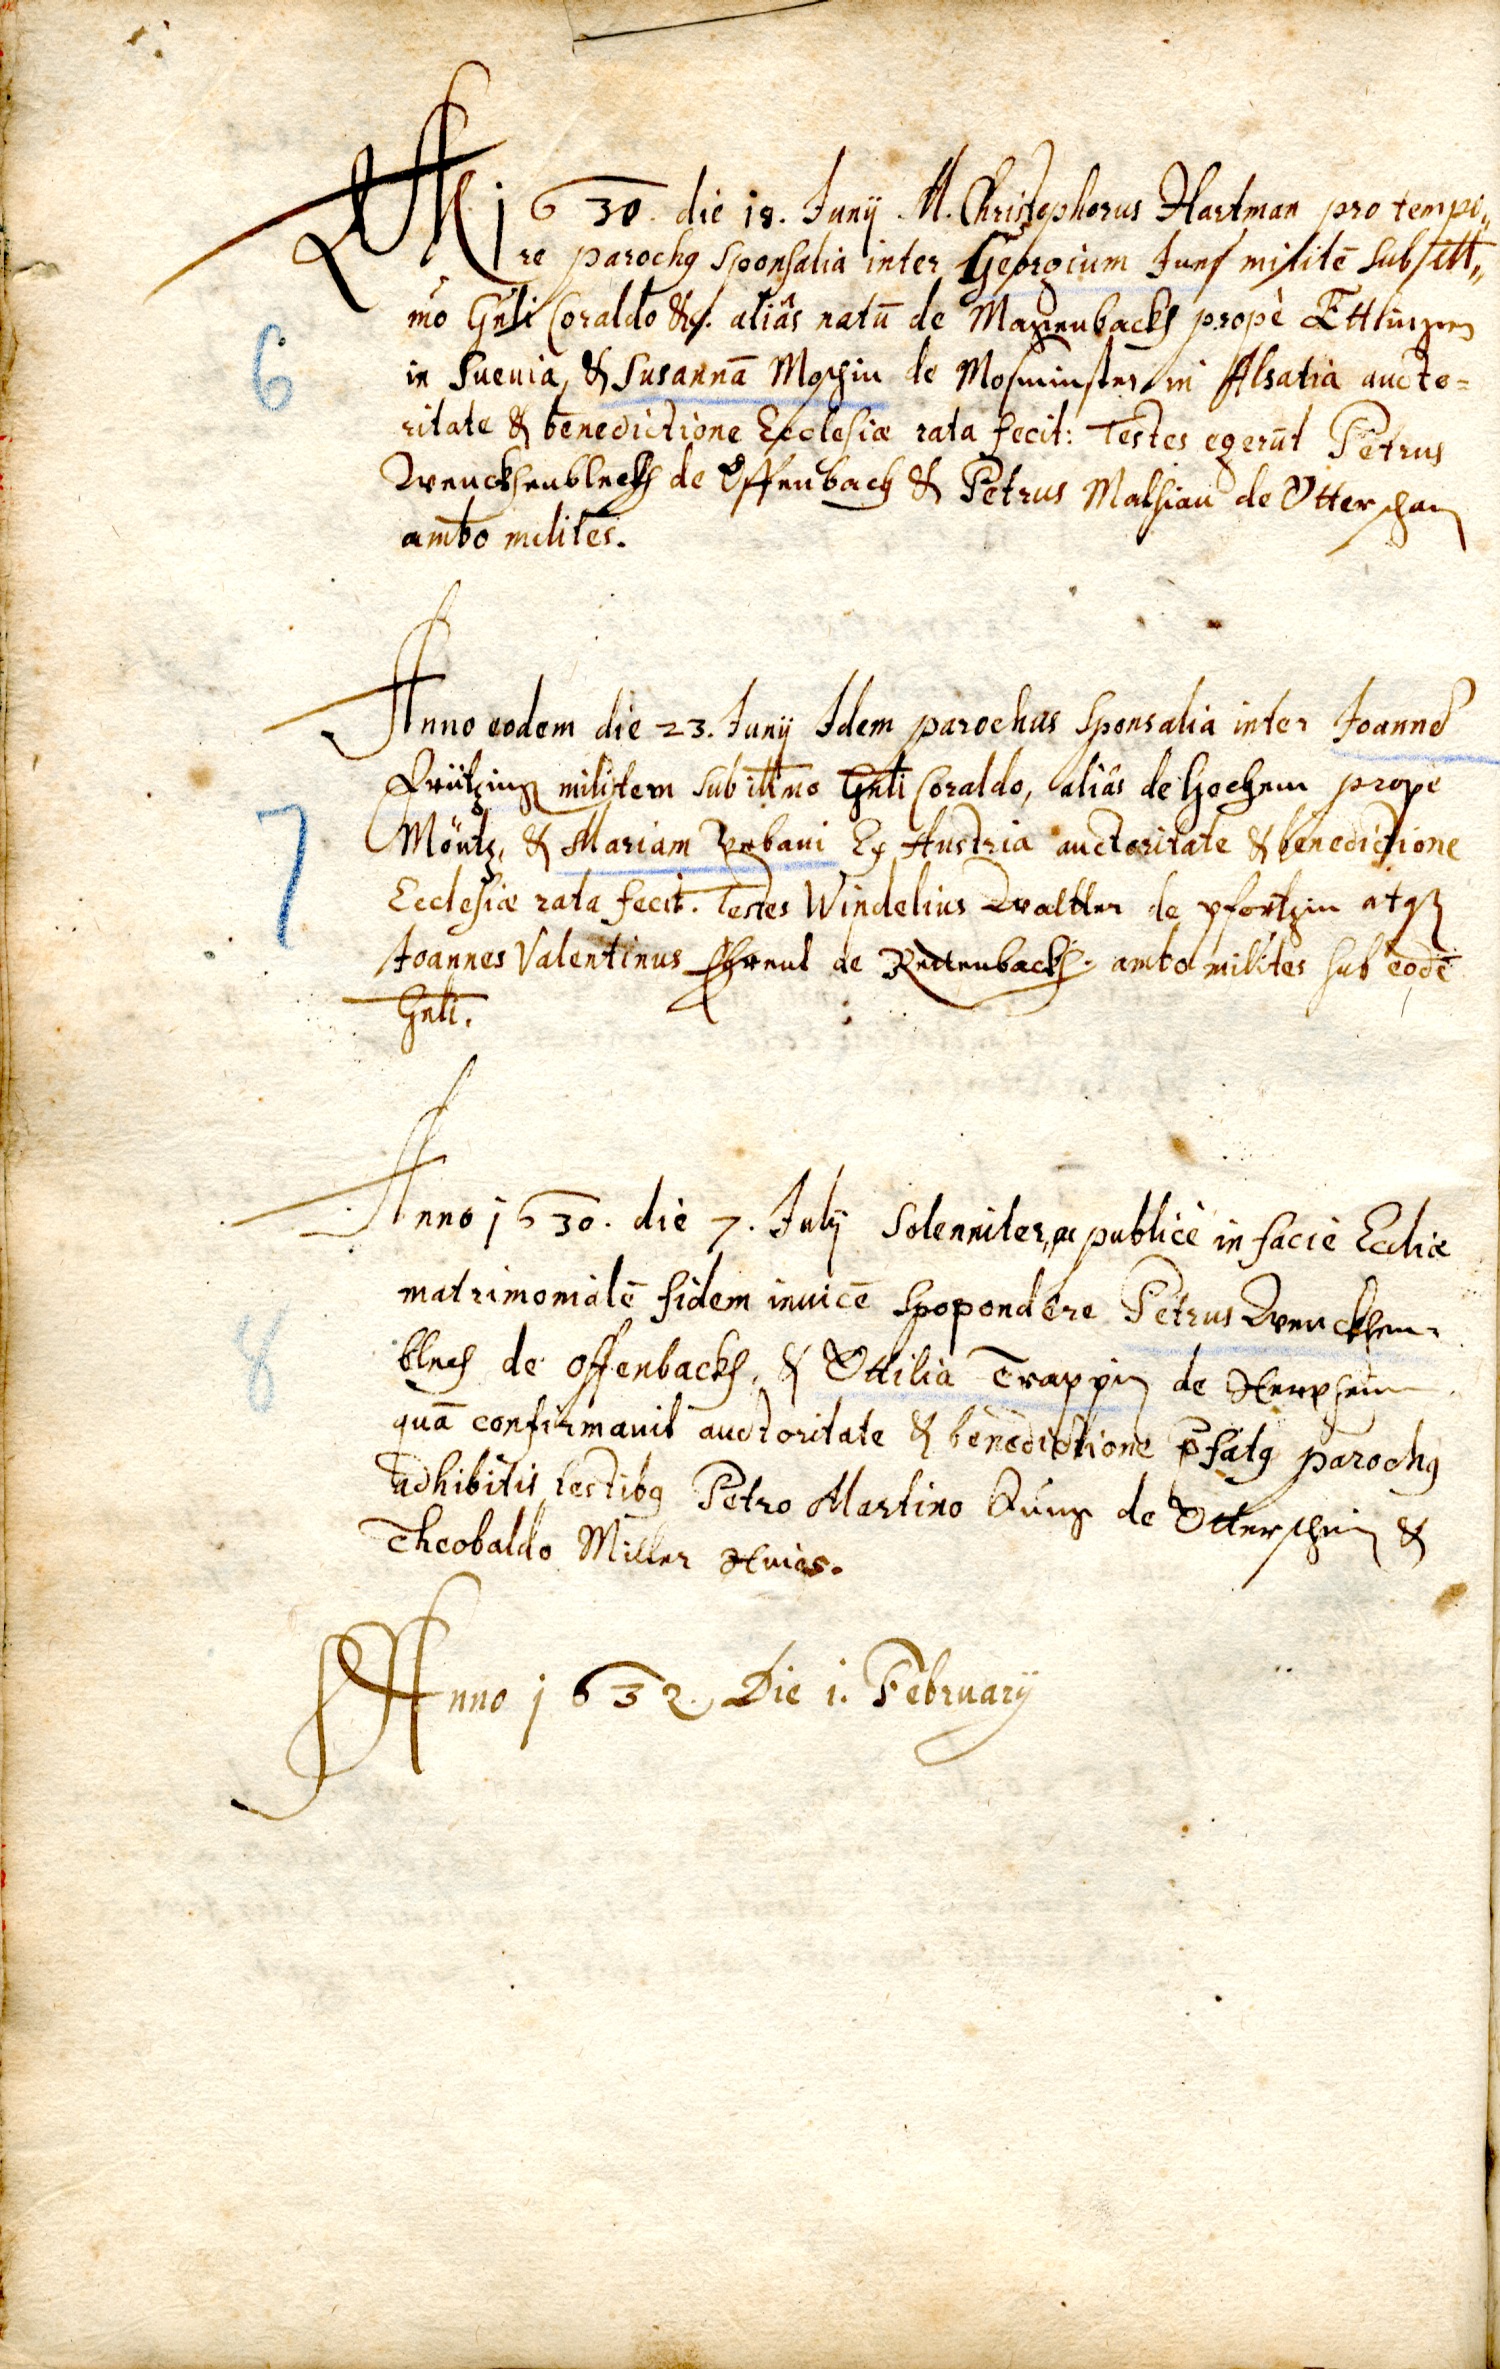 A 1630. die 18. Junÿ M. Christophorus Hartman pro tempo„
re parochꝯ sponsalia inter Georgium militē sub Ill„
mo Gn̄li Coraldo &c. aliâs natū de propè Ettlingen
6
in Sueuia, & Susannā de Mosminster in Alsatia aucto=
ritate & benedictione Ecclesiæ rata fecit: Testes egerūt Petrus
de Offenbach & Petrus de
ambo milites.
Anno eodem die 23. Junÿ Idem parochus sponsalia inter Joannē
militem sub illmo Gn̄li Coraldo, aliâs de Hochem propè
7
& Mariam Vrbani Ex Austria auctoritate & benedictione
Ecclesiæ rata fecit. Testes Windelius de pfortzin atqꝫ
Joannes Valentinus de ambo milites sub eodē
Gn̄li.
Anno 1630. die 7. Julÿ Solenniter, ac publicè in facie Eccliæ
matrimonialē fidem inuicē spopondêre Petrus
8
blech de Offenbach, & Ottilia Trappin de
quā confirmauit auctoritate & benedictione p̄fatꝯ parochꝯ
adhibitis testibꝯ Petro Martino de &
Theobaldo Miller
Anno 1632. Die 1. Februarÿ